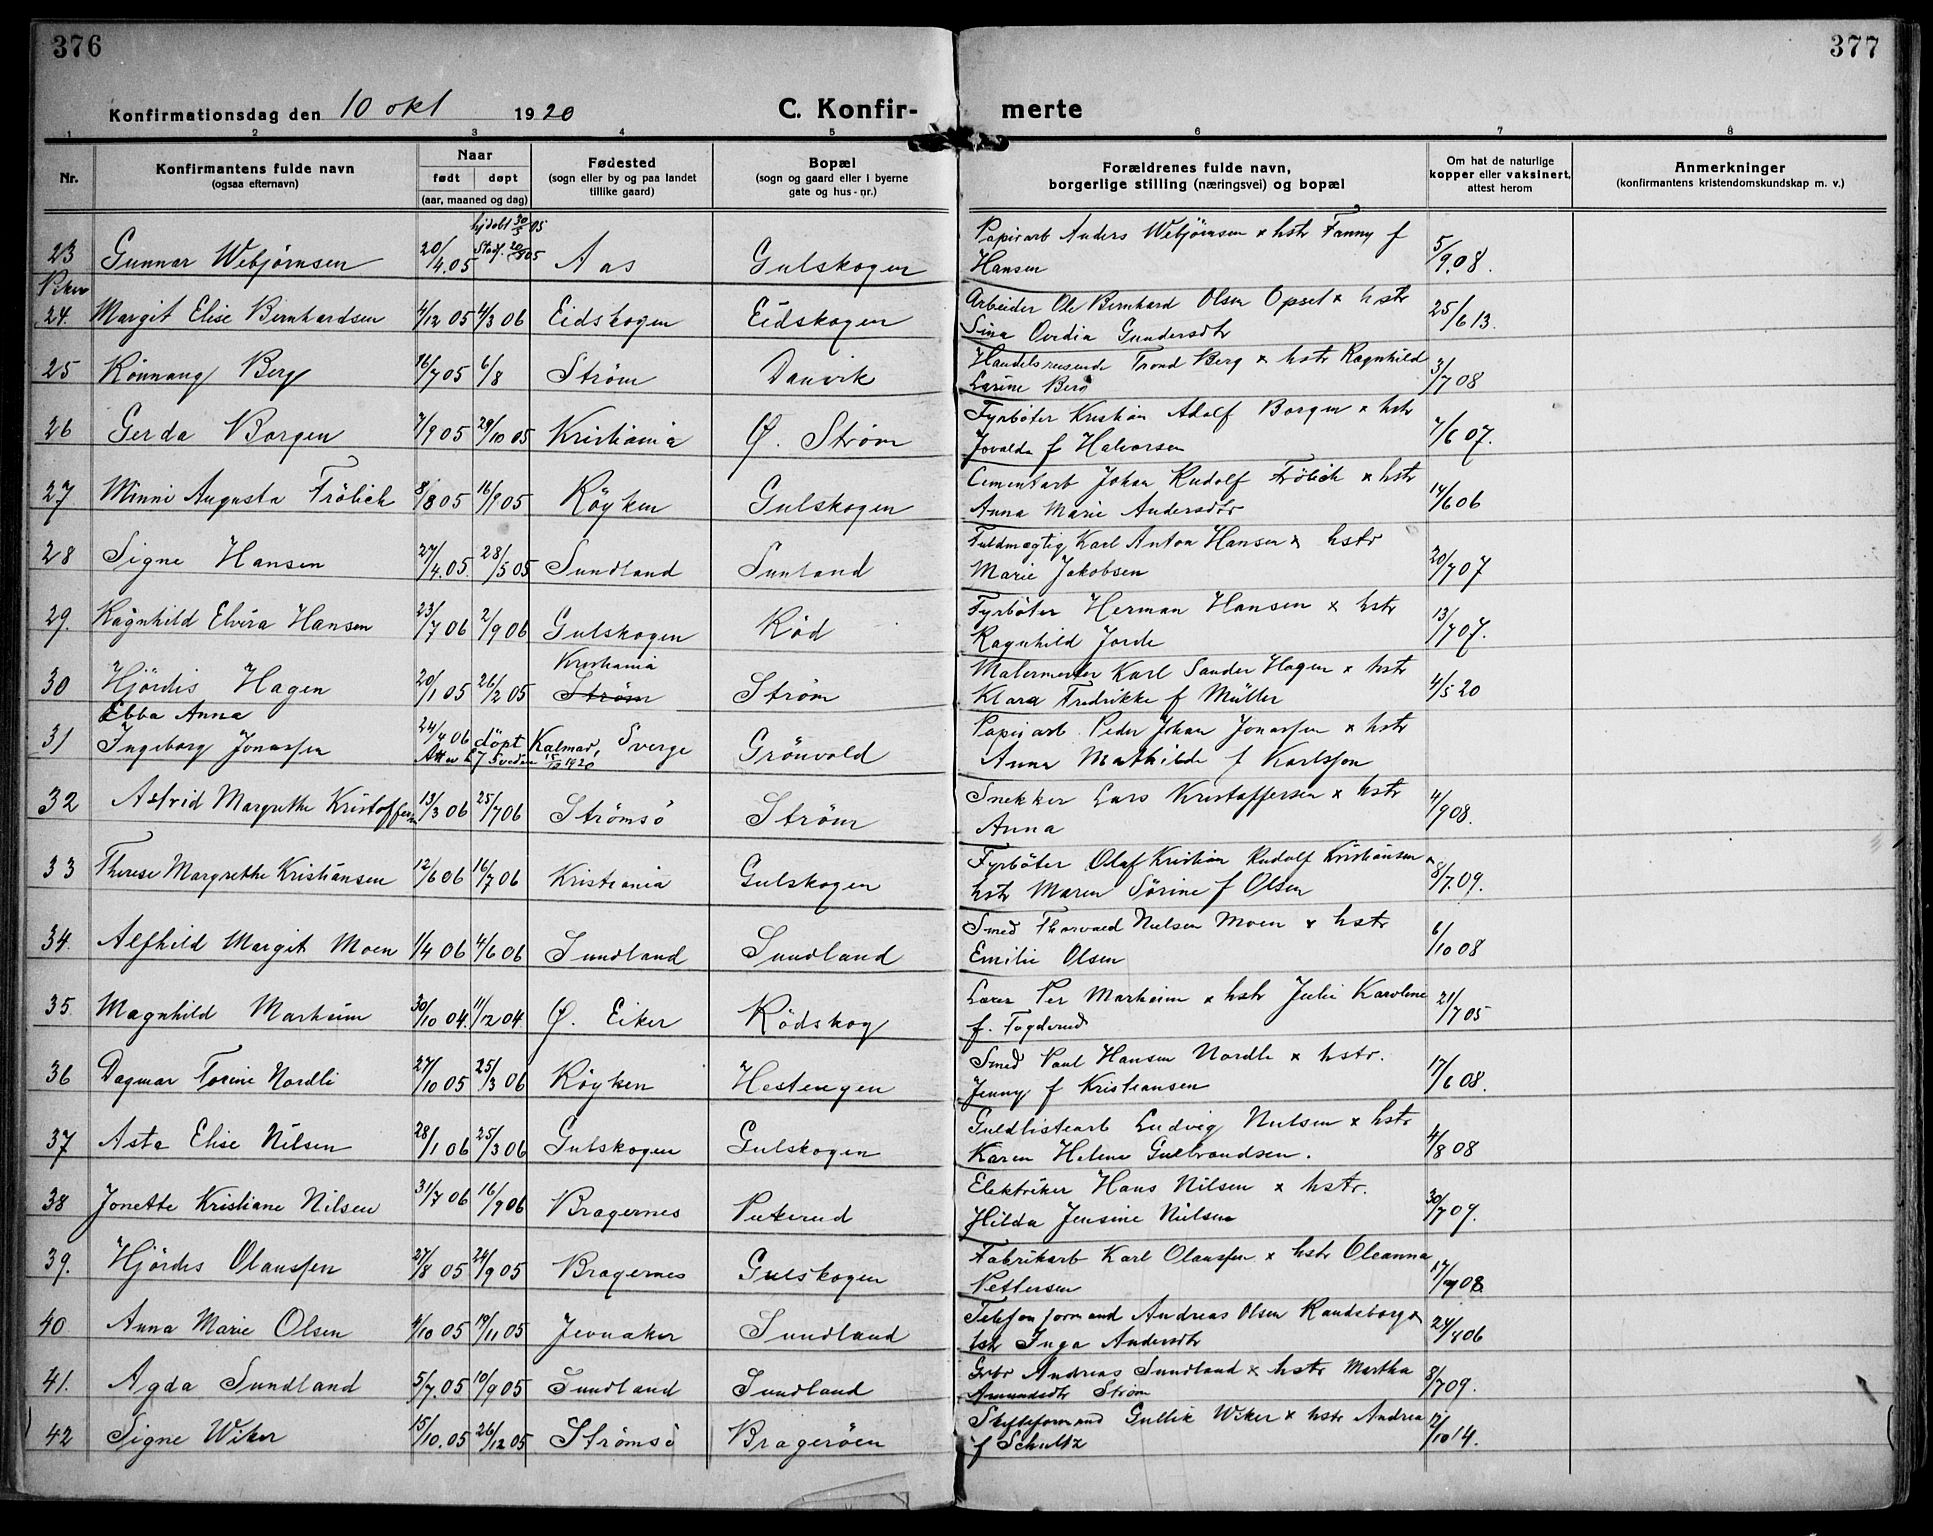 376
377
Konfirmationsdag den 10 okt 1920
C. Konfir-
merte
1 2 3 4 5 6 7 8
Nr.
Konfirmantens fulde navn
(ogsaa efternavn)
Naar
født døpt
(aar, maaned og dag)
Fødested
(sogn eller by og paa landet
tillike gaard)
Bopæl
(sogn og gaard eller i byerne
gate og hus-nr.)
Forældrenes fulde navn,
borgerlige stilling (næringsvei) og bopæl
Om hat de naturlige
kopper eller vaksinert,
attest herom
Anmerkninger
(konfirmantens kristendomskundskap m. v.)
hjdøbt 30/5 05
23 Gunnar Webjørnsen 20/4.05 Aas Gulskogen Papirarb Anders Webjörnsen x hstr Fanny f 5/9.08.
Hansen
Piker
24. Margit Elise Bernhardsen 4/12 05 4/3 06 Eidskogen Eidskogen Arbeider Ole Bernhard Olsen Opset x hstr 25/6 13.
Lina Ovidia Gundersdtr
25 Rönnaug Berg 16/7 05 6/8 Strøm Danvik Handelsreisende Trond Berg x hstr Ragnhild 3/7 08
Larine Berg
26 Gerda Borgen 7/9 05 29/10 05 Kristiania Ø. Strøm Fyrbøter Kristian Adolf Borgen x hstr 7/6 07.
Jovalda f Halvorsen
27 Minni Augusta Frölich 8/8 05 16/9 05 Röyken Gulskogen Cementarb Johan Rudolf Frölich x hstr 14/6 06
Anna Marie Andersdtr
28 Signe Hansen 27/4.05. 28/5 05 Sundland Sunland Fuldmægtig Karl Anton Hansen x hstr 20/7 07
Marie Jakobsen
29. Ragnhild Elvira Hansen 23/7 06 2/9 06 Gulskogen Röd Fyrböter Herman Hansen x hstr 13/7 07.
Ragnhild Jorde
Kristiania
30 Hjördis Hagen 20/1 05 26/2 05 Strøm Strøm Malermester Karl Sander Hagen x hstr 4/5 20
Klara Fredrikke f Müller
Ebba Anna
31 Ingeborg Jonassen 24/4 06 döpt Kalmar, Sverge Grönvold Papirarb. Peder Johan Jonassen x hstr
15/10 1920
Anna Mathilde f Karlsson
32 Astrid Margrethe Kristoffersen 13/3 06 25/7 06 Strømsö Strøm Snekker Lars Kristoffersen x hstr 4/9 08.
Anna
33 Therese Margrethe Kristiansen 12/6 06 16/7 06 Kristiania Gulskogen Fyrböter Olaf Kristian Rudolf Kristiansen x 8/7.09.
hstr Maren Sörine f Olsen
34. Alfhild Margit Moen 1/4 06 4/6 06 Sundland Sundland Smed Thorvald Nielsen Moen x hstr 6/10 08
Emilie Olsen
35 Magnhild Marheim 30/10 04. 11/12 04 Ø. Eiker Rödskog Lærer Per Marheim x hstr Julie Karoline 21/7 05
f. Fogderud
36 Dagmar Torine Nordli 27/10 05 25/3 06 Röyken Hestengen Smed Paul Hansen Nordli x hstr. 17/6 08.
Jenny f Kristiansen
37 Asta Elise Nilsen 28/1 06 25/3 06 Gulskogen Gulskogen Guldlistearb Ludvig Nielsen x hstr 4/8 08
Karen Helene Gulbrandsen.
38 Jonette Kristiane Nilsen 31/7 06 16/9 06 Bragernes Puterud Elektriker Hans Nilsen x hstr. 30/7 07.
Hilda Jensine Nielsen
39. Hjördis Olaussen 27/8 05 24/9 05 Bragernes Gulskogen Fabrikarb Karl Olaussen x hstr Oleanna 17/7 08
Pettersen
40 Anna Marie Olsen 4/10 05 19/11 05 Jevnaker Sundland Telefonformand Andreas Olsen Randsborg x
hstr Inga Andersdtr
41. Agda Sundland 5/7.05 10/9 05 Sundland Sundland Gbr Andreas Sundland x hstr Martha 8/7 09.
Amundsdtr Strøm
42 Signe Wiker 15/10.05 26/12 05 Strømsö Bragerøen Skifteformand Gullik Wiker x hstr Andrea 12/10 14.
f Schultz